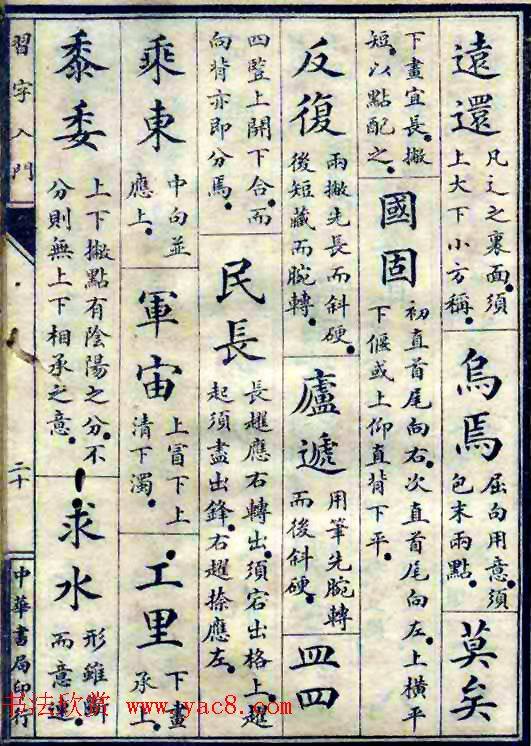 遠還
凡辶之裏面須
上大下小方稱。
烏焉
屈勾用意須
包末兩點。
莫矣
下畫宜長。撇
短。以點配之。
國固
初直首尾向右。次直首尾向左。上橫平
下偃或上仰直背下平。
反復
兩撇先長而斜硬。
後短藏而腕轉。
廬遞
用筆先腕轉
而後斜硬。
皿四
四豎上開下合。而
向背亦即分焉。
民長
長趯應右轉出。須宕出格上。趯
起須盡出鋒。右趯捺應左。
乘東
中向並
應上。
軍宙
上冒下上
清下濁。
工里
下畫
承上。
黍委
上下撇點有陰陽之分。不
分則無上下相承之意。
求水
形雖斷
而意連。
習字入門
二十
中華書局印行
书法欣赏 www.yac8.com